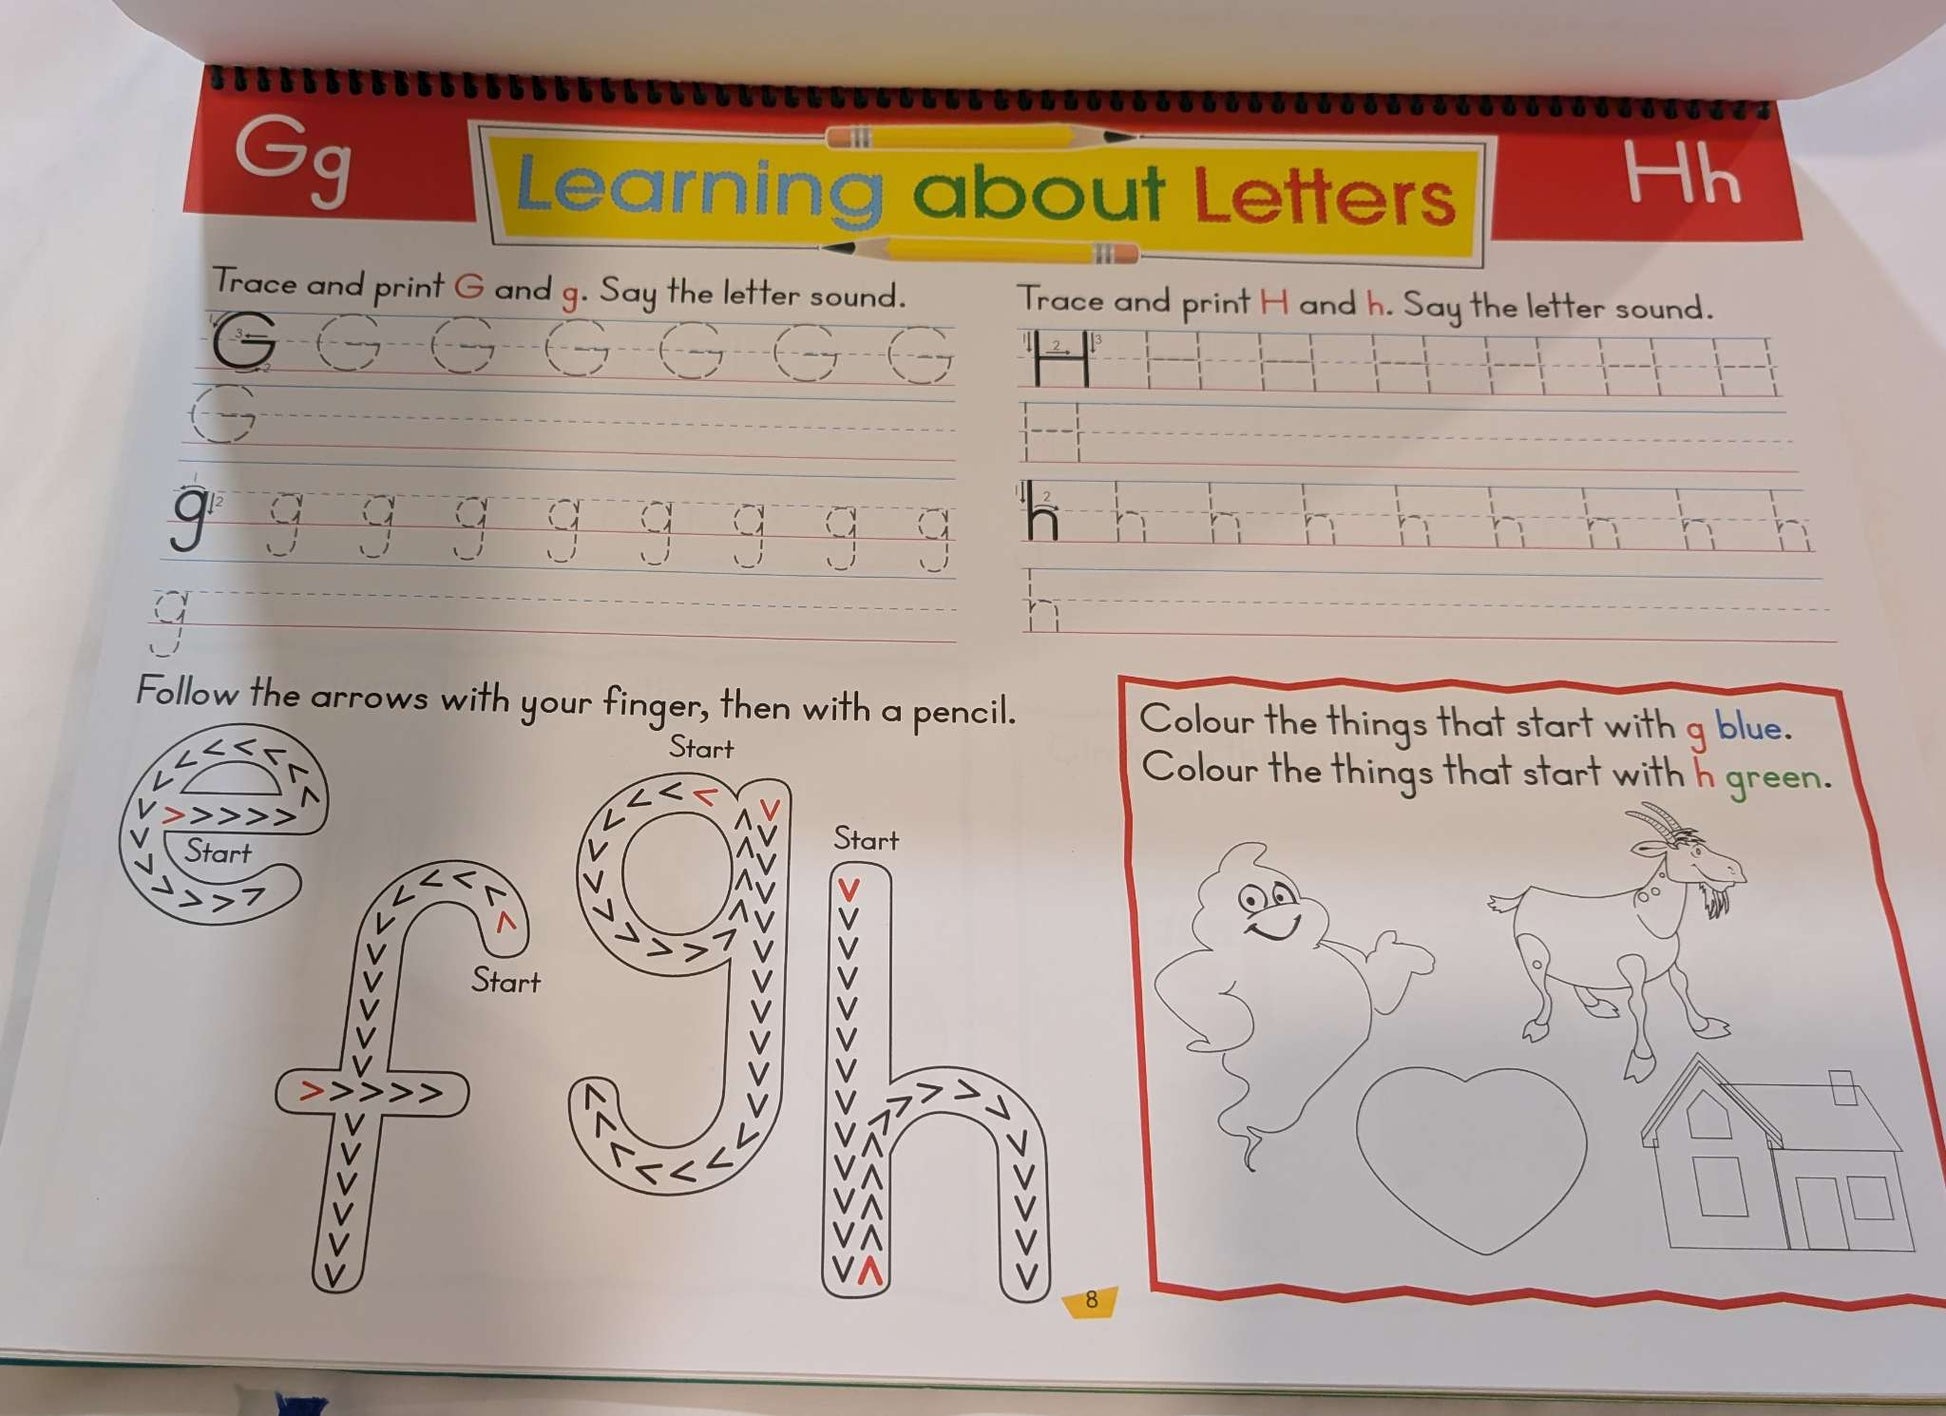 Gg
Learning about Letters
Hh
Trace and print G and g. Say the letter sound.
G G G G G G G
G
g g g g g g g g g
g
Trace and print H and h. Say the letter sound.
H H H H H H H
H
h h h h h h h h h
h
Follow the arrows with your finger, then with a pencil.
e
Start
f
Start
Start
g
Start
h
Colour the things that start with g blue.
Colour the things that start with h green.
8